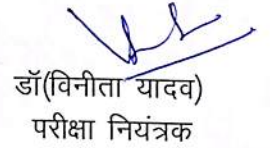 डॉ(विनीता यादव)
परीक्षा नियंत्रक